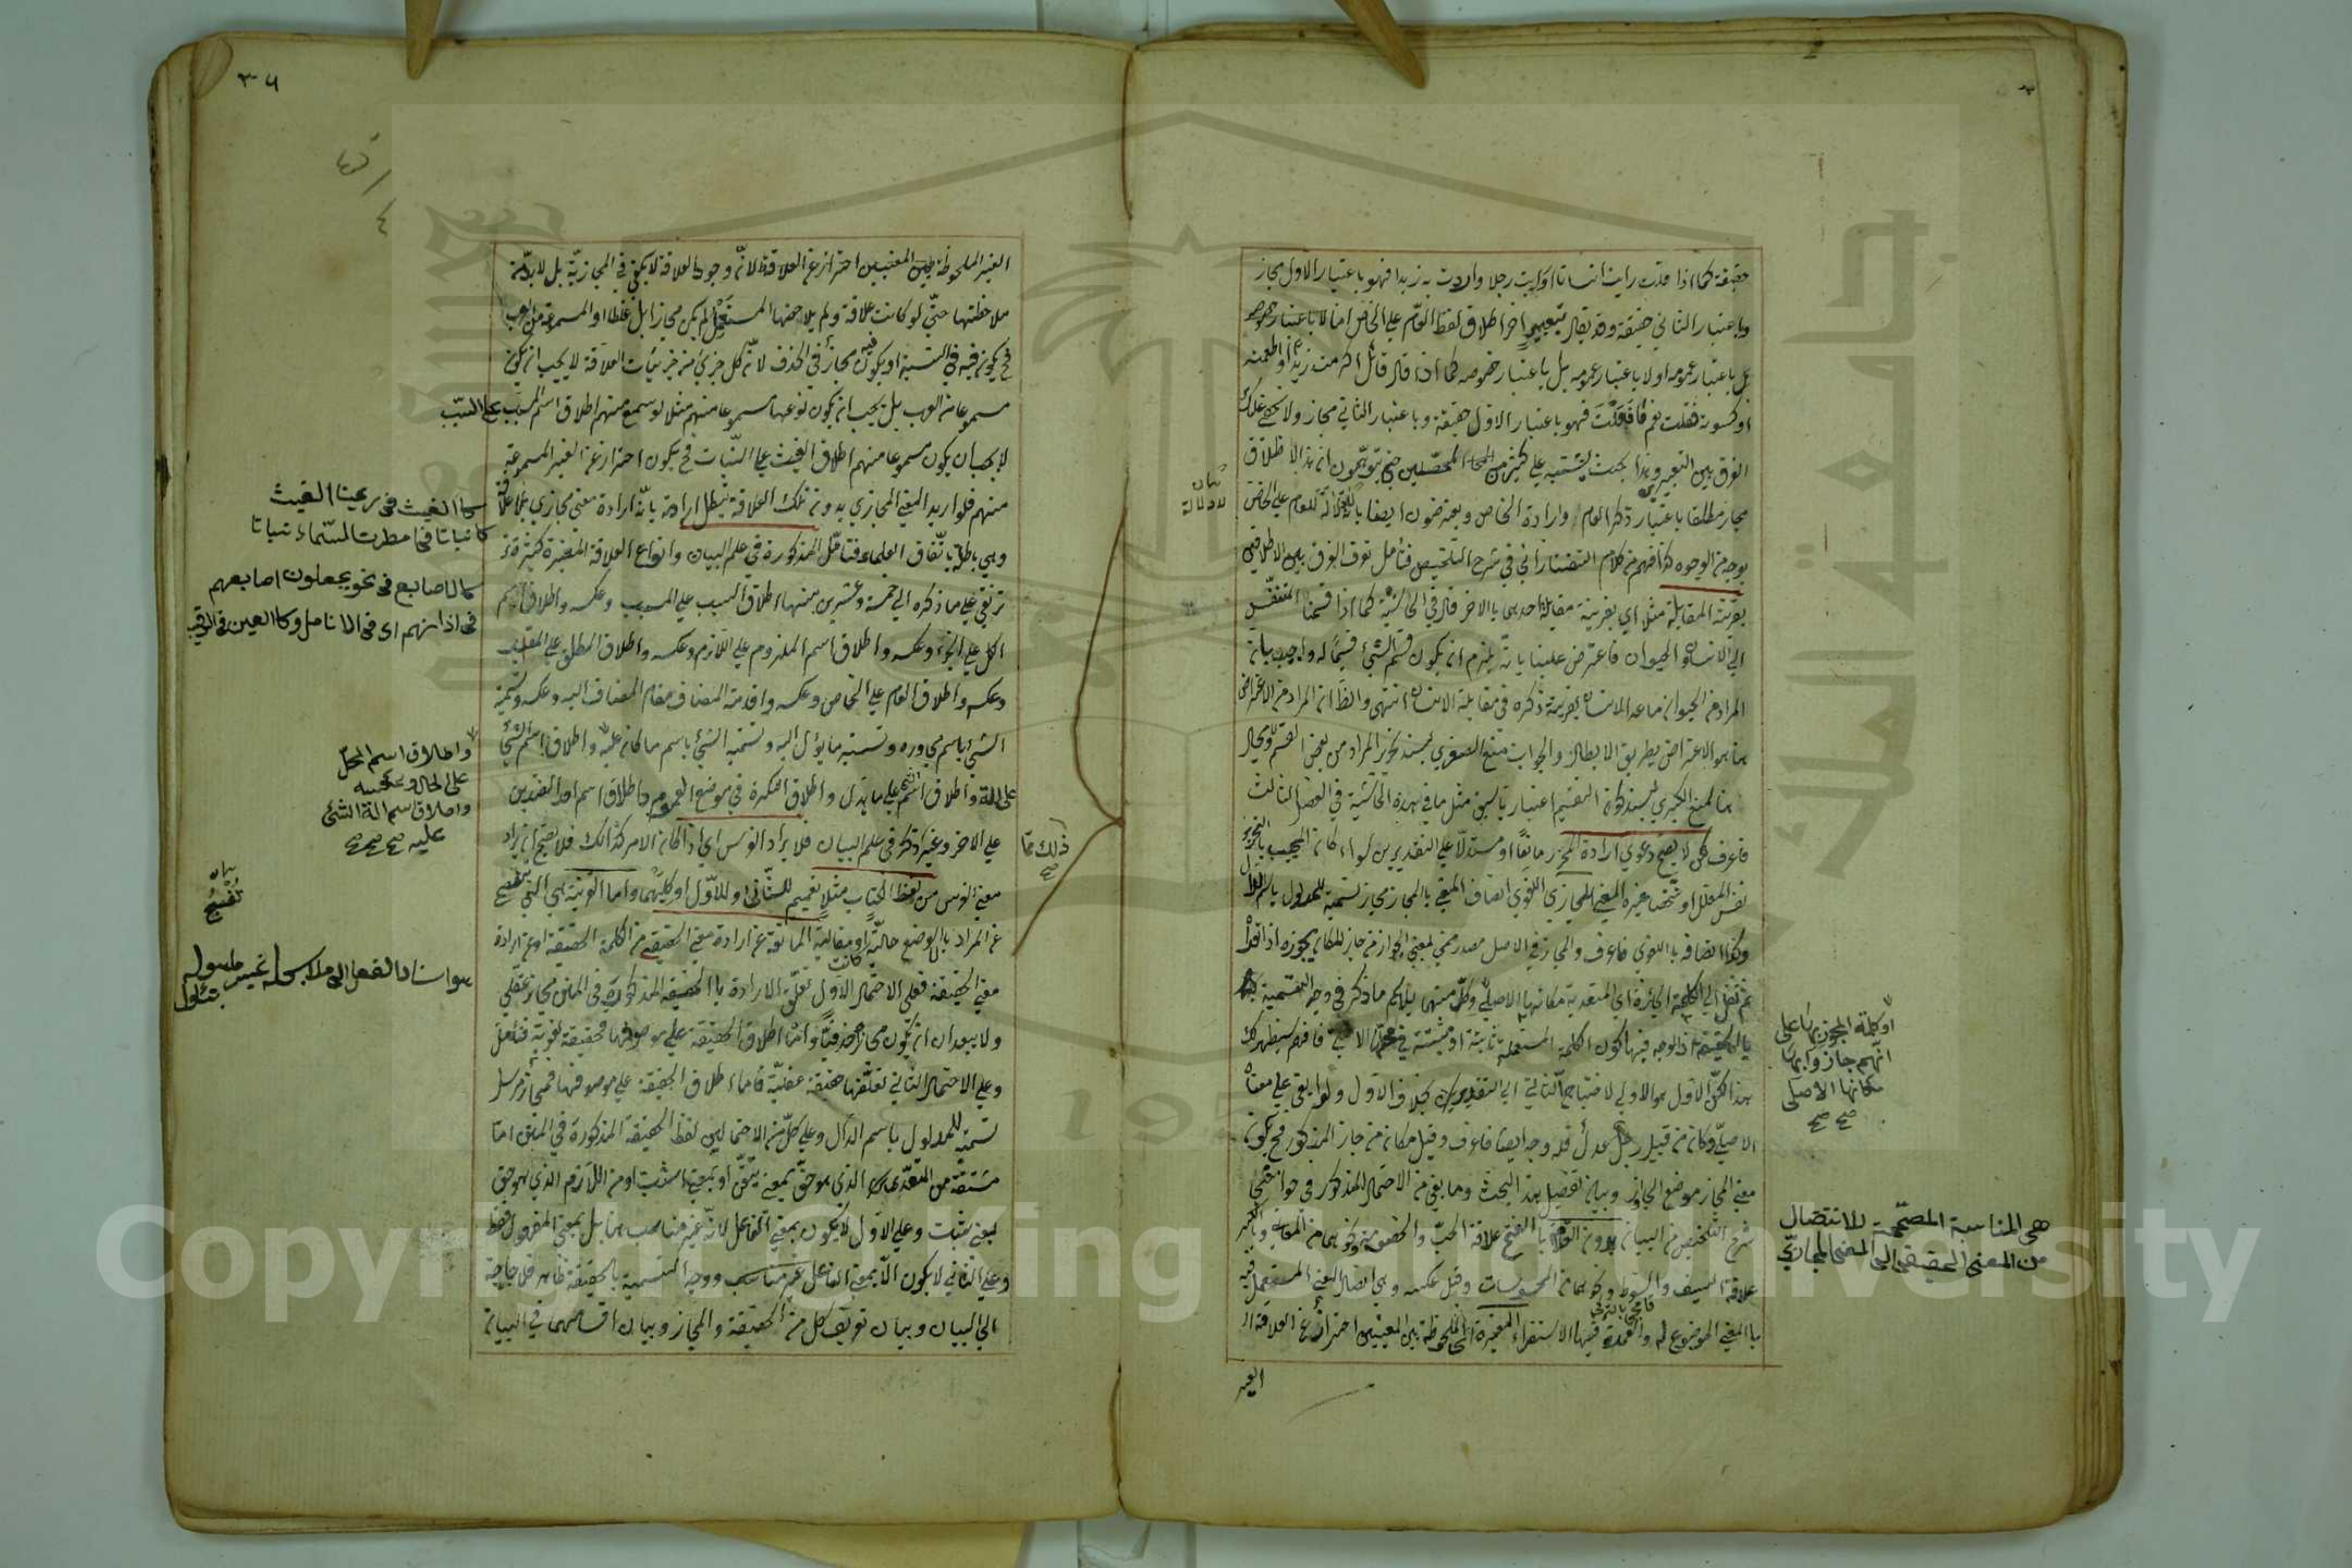 حقيقة كما اذا قلت رايت انسانا او رايت رجلا واردت به زيدا فهو باعتبار الاول مجاز
وباعتبار الثاني حقيقة وقد يقال بتعبير اخر اطلاق لفظ العام على الخاص اما لا باعتبار خصوصه
بل باعتبار عمومه اولا باعتبار عمومه بل باعتبار خصوصه كما اذا قال قائل اكرمت زيدا او اطعمته
او كسوته فقلت نعم ما فعلت فهو باعتبار الاول حقيقة وباعتبار الثاني مجاز ولا يخفى عليك
الفرق بين التعبيرين وهذا بحث يشتبه على كثير من المحصلين حتى يتوهمون ان هذا الاطلاق
مجاز مطلقا باعتبار ذكر العام وارادة الخاص ويعترضون ايضا بانه لا دلالة للعام على الخاص
بوجه من الوجوه كذا فهم من كلام التفتازاني في شرح التلخيص فتأمل تعرف الفرق بين الاطلاقين
بقرينة المقابلة مثلا اي بقرينة مقابلة احدهما بالاخر قال في الحاشية كما اذا قسمنا المتنفس
الى الانسان والحيوان فاعترض علينا بانه يلزم ان يكون قسم الشئ قسيما له واجيب بان
المراد من الحيوان ما عدا الانسان بقرينة ذكره في مقابلة الانسان انتهى والظ ان المراد من الاعتراض
هنا هو الاعتراض بطريق الابطال والجواب منع الصغرى بسند تحرير المراد من بعض القسم ومجال
هنا لمنع الكبرى بسند كون التقسيم اعتباريا سبق مثل ما في هذه الحاشية في الفصل الثالث
فاعرف لا يصح دعوى ارادة المحرر مانعا او مستدلا على التقديرين سواء كان المجيب بالتحرير
نفس المعلل او شخصا غيره المعنى المجازي اللغوي اتصاف المعنى بالمجاز مجاز تسمية للمدلول باسم الدال
وكذا اتصافه باللغوي فاعرف والمجاز في الاصل مصدر ميمي بمعنى الجواز من جاز المكان يجوزه اذا تعداه
ثم نقل الى الكلمة الجائزة اي المتعدية مكانها الاصلي وكل منهما يلائم ما ذكر في وجه التسمية
بالحقيقة اذ الوجه فيها كون الكلمة المستعملة ثابتة او مثبتة في محلها الاصلي فافهم سيظهر لك
هذا لكن الاول هو الاولى لاحتياج الثاني الى التقدير بخلاف الاول ولو ابقى على معناه
الاصلي وكان من قبيل رجل عدل فله وجه ايضا فاعرف وقيل مكان من جاز المذكور فح يكون
معنى المجاز موضع الجواز وبيان تفصيل هذا البحث وما بقي من الاحتمال المذكور في حواشي
شرح التلخيص من البيان بدون العلاقة بالفتح علاقة الحب والخصومة ونحوهما من المعاني وبالكسر
علاقة السيف والسوط ونحوهما من المحسوسات وقيل عكسه وهي اتصال المعنى المستعمل فيه
بالمعنى الموضوع له والعمدة فيها الاستقراء المعتبرة الملحوظة بين المعنيين احتراز عن العلاقة
الغير
بيان
لا دلالة
او كلمة المجوز بها على
انهم جازوا بها
مكانها الاصلي
صح صح
هى المناسبة المصححة للانتقال
من المعنى الحقيقى الى المعنى المجازي
٣٦
الغير الملحوظة بين المعنيين احتراز عن العلاقة لانه وجود العلاقة لا يكفي في المجازية بل لا بد من
ملاحظتها حتى لو كانت علاقة ولم يلاحظها المستعمل لم يكن مجازا بل غلطا او المسموعة من العرب
فح يكون فيه في النسبة او يكون فيه مجاز في الحذف لان كل جزئي من جزئيات العلاقة لا يجب ان يكون
مسموعا من العرب بل يجب ان يكون نوعها مسموعا منهم مثلا لو سمع منهم اطلاق اسم المسبب على السبب
لا يجب ان يكون مسموعا منهم اطلاق الغيث على النبات فح يكون احتراز عن الغير المسموعة
منهم فلو اريد المعنى المجازي بدون تلك العلاقة تبطل ارادته بانه ارادة معنى مجازي بلا علاقة
وهي باطلة باتفاق العلماء فتأمل المذكورة في علم البيان وانواع العلاقة المعتبرة كثيرة
ترتقي على ما ذكره الى خمسة وعشرين منها اطلاق السبب على المسبب وعكسه واطلاق اسم
الكل على الجزء وعكسه واطلاق اسم الملزوم على اللازم وعكسه واطلاق المطلق على المقيد
وعكسه واطلاق العام على الخاص وعكسه واقامة المضاف مقام المضاف اليه وعكسه وتسمية
الشئ باسم مجاوره وتسميته ما يؤل اليه وتسمية الشئ باسم ما كان عليه واطلاق اسم الشئ
على آلته واطلاق اسم الشئ على بدله واطلاق النكرة في موضع العموم واطلاق اسم احد الضدين
على الاخر وغير ذلك مما ذكر في علم البيان فلا يراد الفرس اي اذا كان الامر كذلك فلا يصح ان يراد
معنى الفرس من لفظ الكتاب مثلا تعميم للثاني او للاول او كليهما واما القرينة فهي التي تفصح
عن المراد بالوضع حالية كانت او مقالية المانعة عن ارادة معنى الحقيقي من الكلمة الحقيقة او عن ارادة
معنى الحقيقة فعلى الاحتمال الاول تعلق الارادة بالحقيقة المذكورة في المتن مجاز عقلي
ولا يبعد ان يكون مجاز حذفيا واما اطلاق الحقيقة على موصوفها فحقيقة لغوية فتأمل
وعلى الاحتمال الثاني تعلقها حقيقة عقلية فاما اطلاق الحقيقة على موصوفها فمجاز مرسل
تسمية للمدلول باسم الدال وعلى كل من الاحتمالين لفظ الحقيقة المذكورة في المتن اما
مشتقة من المتعدي الذي هو حق بمعنى تيقن او بمعنى اثبت او من اللازم الذي هو حق
بمعنى ثبت وعلى الاول لا يكون بمعنى الفاعل لانه غير مناسب هنا بل بمعنى المفعول فقط
وعلى الثاني لا يكون الا بمعنى الفاعل غير مناسب ووجه التسمية بالحقيقة ظاهر فلا حاجة
الى البيان وبيان تعريف كل من الحقيقة والمجاز وبيان اقسامهما في البيان
كما الغيث فى رعينا الغيث
كا نباتا فى امطرت السماء نباتا
كالاصابع فى نحو يجعلون اصابعهم
فى اذانهم اى فى الانامل وكالعين فى الرقيب
واطلاق اسم المحل
على الحال وعكسه
واطلاق اسم الة الشئ
عليه صح صح صح
ذلك مما
صح
بيان
تفصح
هو اسناد الفعل الى ملابس له غير ما هو له
بتأول
Copyright © King Saud University
1957
جامعة الملك سعود